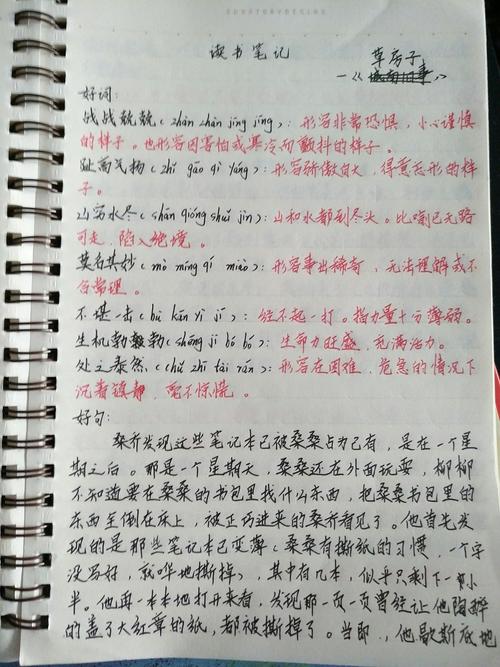 读书笔记
草房子
—《》
好词:
战战兢兢(zhàn zhàn jīng jīng):形容非常恐惧,小心谨慎
的样子。也形容因害怕或寒冷而颤抖的样子。
趾高气扬(zhǐ gāo qì yáng):形容骄傲自大,得意忘形的样
子。
山穷水尽(shān qióng shuǐ jìn):山和水都到尽头。比喻已无路
可走,陷入绝境。
莫名其妙(mò míng qí miào):形容事出稀奇,无法理解或不
合常理。
不堪一击(bù kān yì jī):经不起一打。指力量十分薄弱。
生机勃勃(shēng jī bó bó):生命力旺盛,充满活力。
处之泰然(chǔ zhī tài rán):形容在困难、危急的情况下
沉着镇静,毫不惊慌。
好句:
桑乔发现这些笔记本已被桑桑占为己有,是在一个星
期之后。那是一个星期天,桑桑还在外面玩耍,柳柳
不知道要在桑桑的书包里找什么东西,把桑桑书包里的
东西全倒在床上,被正巧进来的桑乔看见了。他首先发
现的是那些笔记本已变薄(桑桑有撕纸的习惯,一个字
没写好,就哗地撕掉),其中有几本,似乎只剩下一小
半。他再一本本地打开来看,发现那一页一页曾经让他陶醉
的盖了大红章的纸,都被撕掉了。当即,他歇斯底地